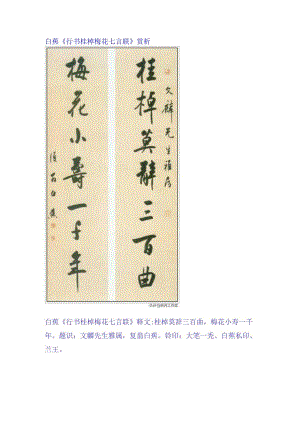 白蕉《行书桂棹梅花七言联》赏析
文麟先生雅属
桂棹莫辞三百曲
梅花小寿一千年
复翁白蕉
白蕉《行书桂棹梅花七言联》释文:桂棹莫辞三百曲,梅花小寿一千
年。题识:文麟先生雅属,复翁白蕉。钤印:大笔一秃、白蕉私印、
兰王。